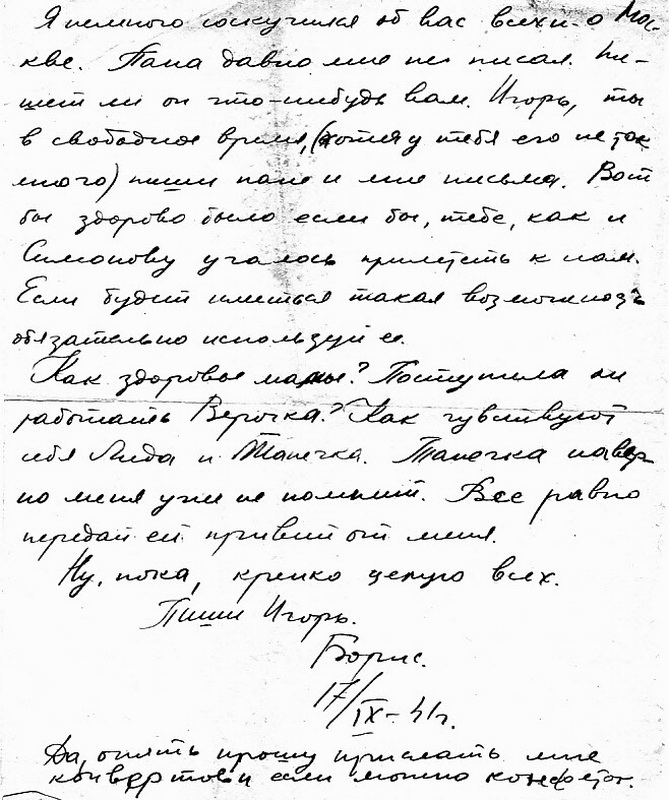 Я немного соскучился об вас всех и о Мос-
кве. Папа давно мне не писал. Пи-
шет ли он что-нибудь вам. Игорь, ты
в свободное время, (хотя у тебя его не так
много) пиши папе и мне письма. Вот
бы здорово было если бы, тебе, как и
Симонову удалось прилететь к нам.
Если будет иметься такая возможность
обязательно используй ее.
Как здоровье мамы? Поступила ли
работать Верочка? Как чувствуют
себя Лида и Танечка. Танечка навер
но меня уже не помнит. Все равно
передай ей привет от меня.
Ну, пока, крепко целую всех.
Пиши Игорь.
Борис.
17/IX-41г.
Да, опять прошу прислать мне
конвертов и если можно конфеток.